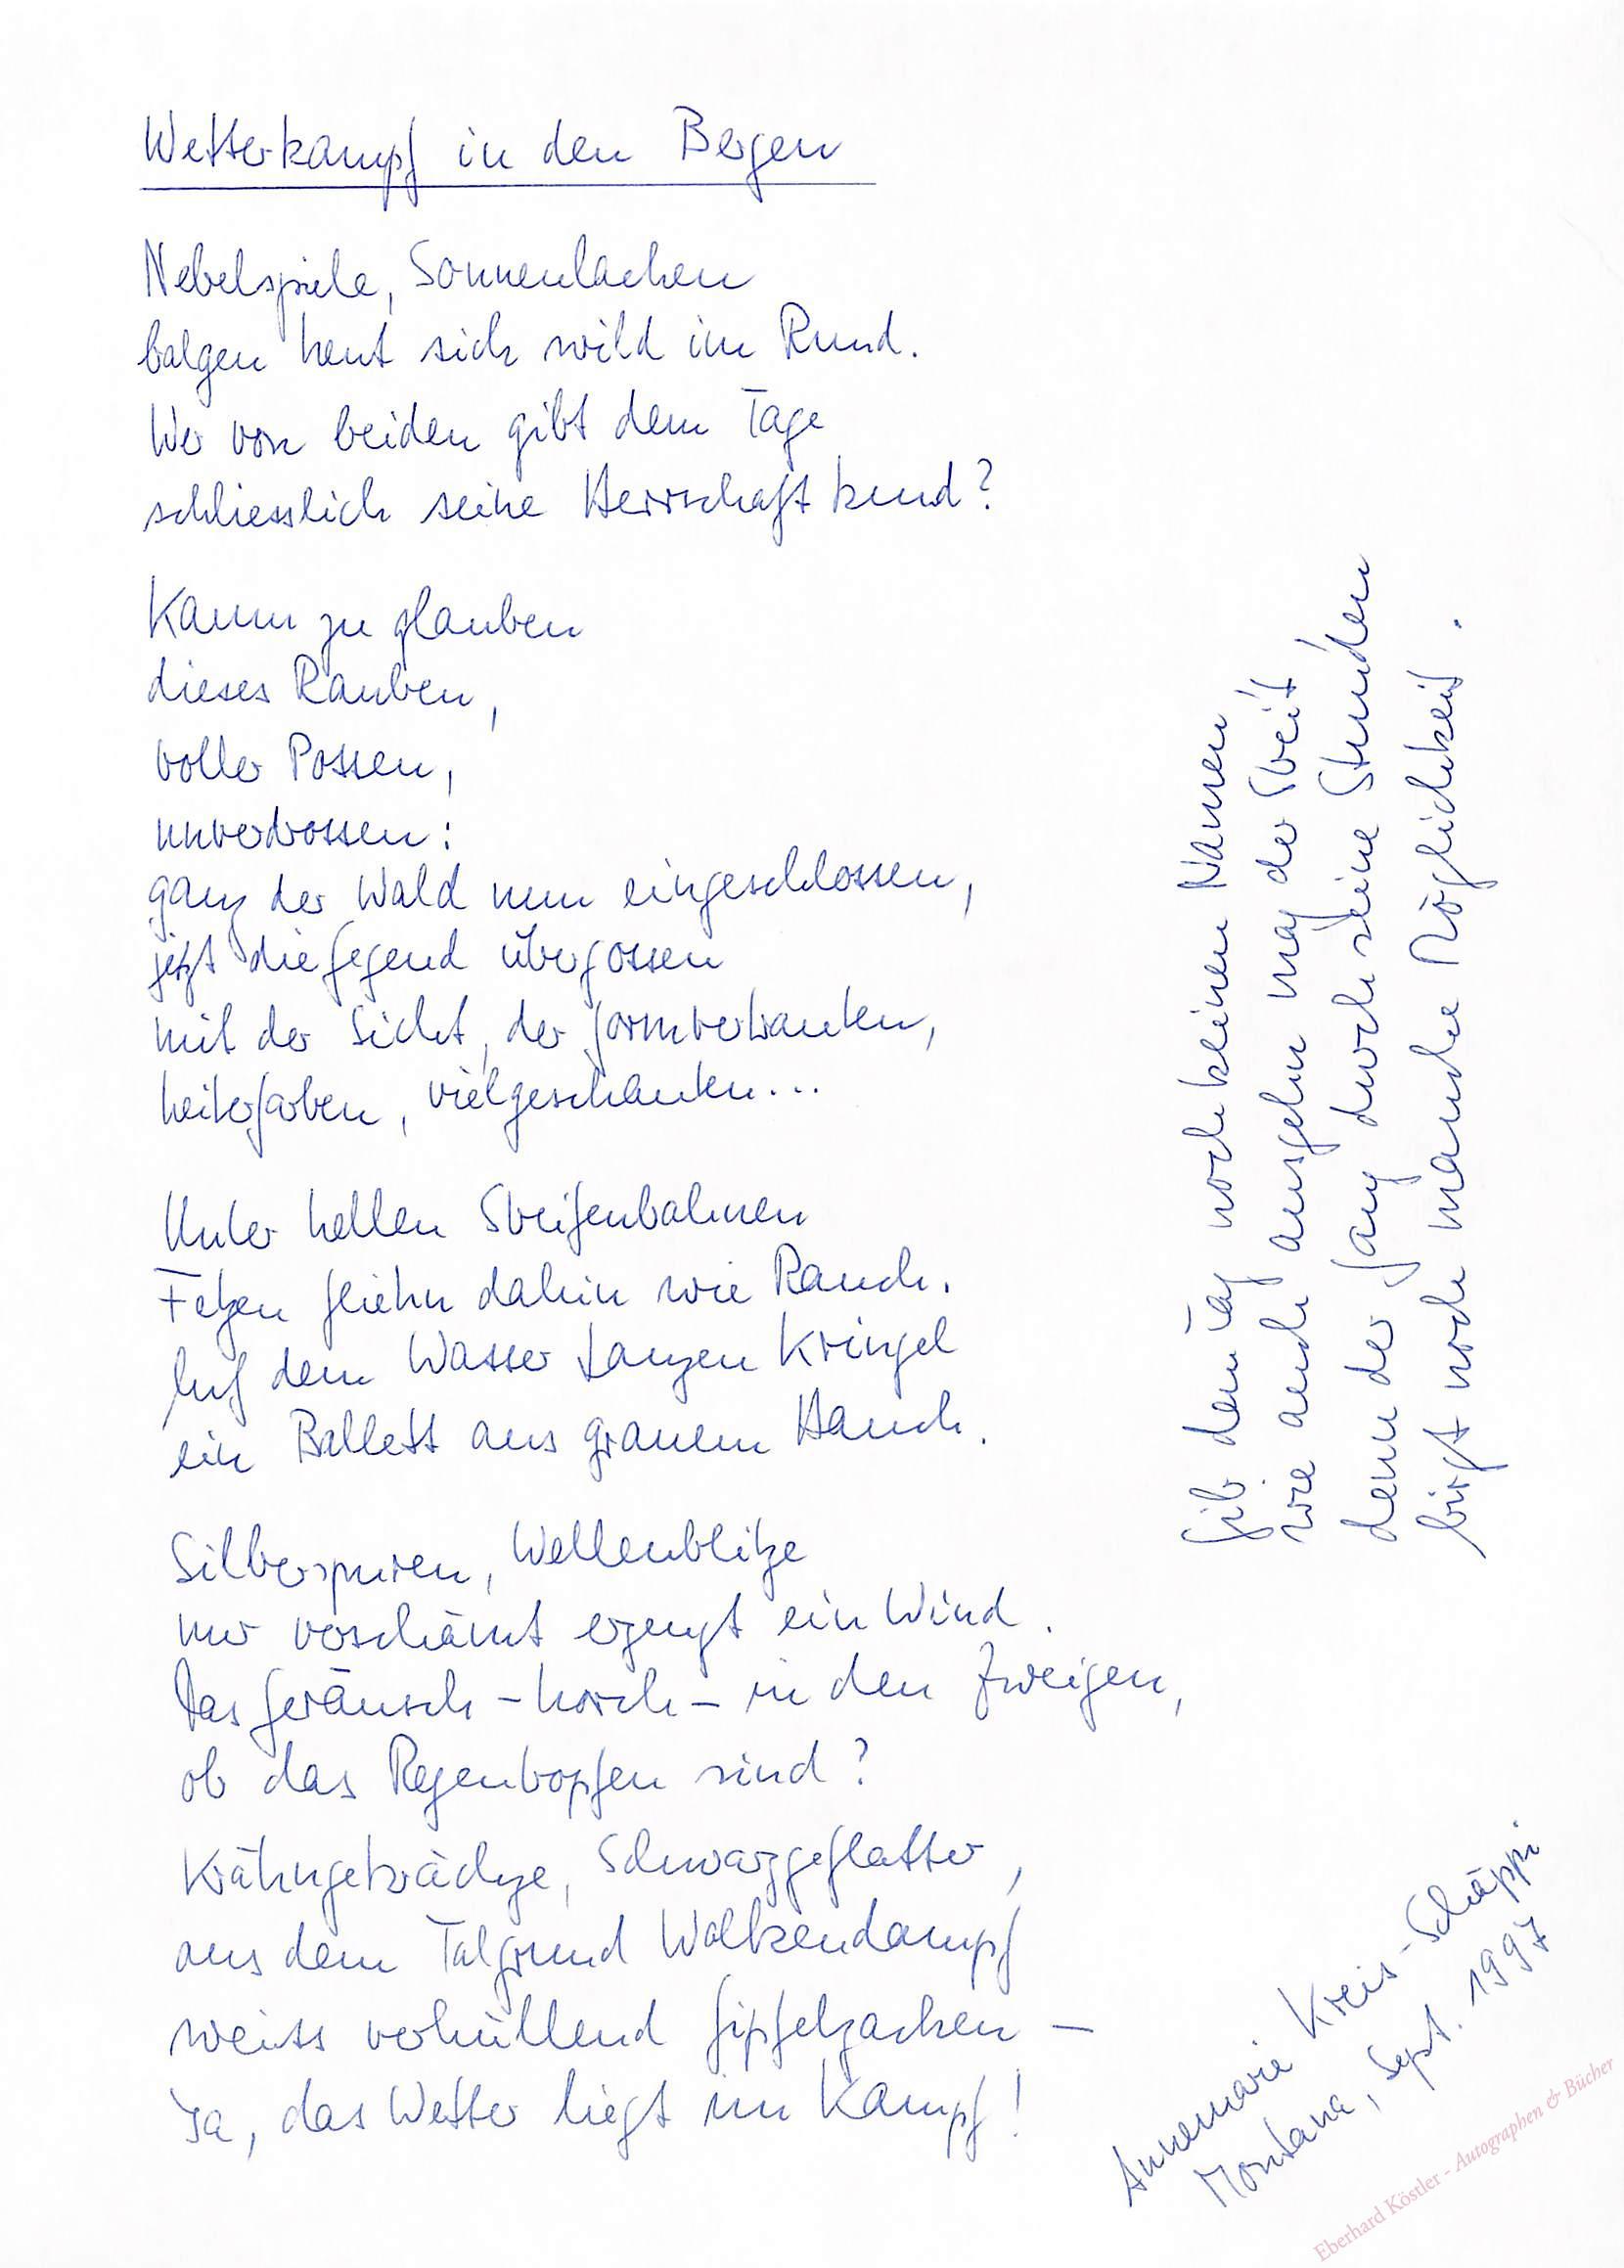 Wetterkampf in den Bergen
Nebelspiele, Sonnenlachen
balgen heut sich wild im Rund.
Wer von beiden gibt dem Tage
schliesslich seine Herrschaft kund?
Kaum zu glauben
dieses Rauben,
voller Possen,
unverdrossen:
ganz der Wald nun eingeschlossen,
jetzt die Gegend übergossen
mit der Sicht, der formvertrauten,
heiterfarben, vielgeschauten...
Unter hellen Streifenbahnen
Fetzen fliehn dahin wie Rauch.
Auf dem Wasser tanzen Kringel
ein Ballett aus grauem Hauch.
Silberspuren, Wellenblitze
nur verschämt erzeugt ein Wind.
Das Geräusch – horch – in den Zweigen,
ob das Regentropfen sind?
Krähngekrächze, Schwarzgeflatter,
aus dem Talgrund Wolkendampf
weiss verhüllend Gipfelzacken –
Ja, das Wetter liegt im Kampf!
Gib dem Tag noch keinen Namen
wie auch ausgehn mag der Streit
denn der Gang durch seine Stunden
birgt noch manche Möglichkeit.
Annemarie Kreis-Schäppi
Montana, Sept. 1997
Eberhard Köstler - Autographen & Bücher